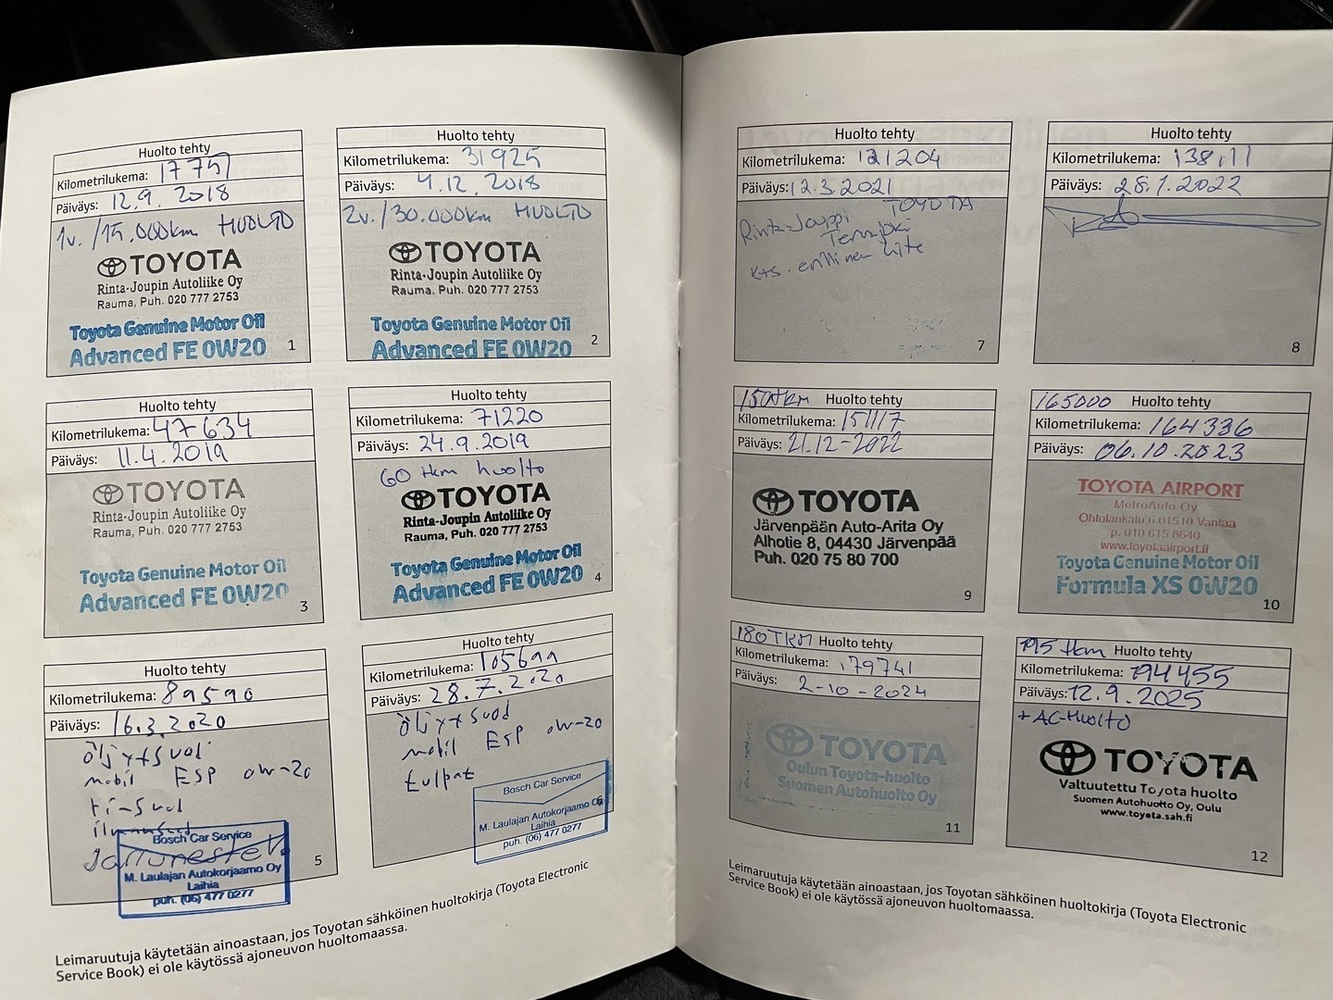 Huolto tehty
Kilometrilukema: 17757
Päiväys: 12.9. 2018
1v. /15.000km HUOLTO
TOYOTA
Rinta-Joupin Autoliike Oy
Rauma, Puh. 020 777 2753
Toyota Genuine Motor Oil
Advanced FE 0W20
1
Huolto tehty
Kilometrilukema: 31925
Päiväys: 4.12. 2018
2v. /30.000km HUOLTO
TOYOTA
Rinta-Joupin Autoliike Oy
Rauma, Puh. 020 777 2753
Toyota Genuine Motor Oil
Advanced FE 0W20
2
Huolto tehty
Kilometrilukema: 47634
Päiväys: 11.4. 2019
TOYOTA
Rinta-Joupin Autoliike Oy
Rauma, Puh. 020 777 2753
Toyota Genuine Motor Oil
Advanced FE 0W20
3
Huolto tehty
Kilometrilukema: 71220
Päiväys: 24.9.2019
60 tkm huolto
TOYOTA
Rinta-Joupin Autoliike Oy
Rauma, Puh. 020 777 2753
Toyota Genuine Motor Oil
Advanced FE 0W20
4
Huolto tehty
Kilometrilukema: 89590
Päiväys: 16.3.2020
öljyt+suod
mobil ESP 0w-20
Jarruneste
Bosch Car Service
M. Laulajan Autokorjaamo Oy
Laihia
puh. (06) 477 0277
5
Huolto tehty
Kilometrilukema: 105699
Päiväys: 28.7.2020
öljyt+suod
mobil ESP 0w-20
tulpat
Bosch Car Service
M. Laulajan Autokorjaamo Oy
Laihia
puh. (06) 477 0277
6
Leimaruutuja käytetään ainoastaan, jos Toyotan sähköinen huoltokirja (Toyota Electronic
Service Book) ei ole käytössä ajoneuvon huoltomaassa.
Huolto tehty
Kilometrilukema: 121204
Päiväys: 12.3.2021
Rinta-Jouppi TOYOTA
Tervajoki
kts. erillinen liite
7
Huolto tehty
Kilometrilukema:
Päiväys: 28.1.2022
8
150tkm Huolto tehty
Kilometrilukema: 151117
Päiväys: 21.12-2022
TOYOTA
Järvenpään Auto-Arita Oy
Alhotie 8, 04430 Järvenpää
Puh. 020 75 80 700
9
165000 Huolto tehty
Kilometrilukema: 164336
Päiväys: 06.10.2023
TOYOTA AIRPORT
MetroAuto Oy
Ohtolankatu 6 01510 Vantaa
p. 010 615 8640
www.toyotaairport.fi
Toyota Genuine Motor Oil
Formula XS 0W20
10
180TKM Huolto tehty
Kilometrilukema: 179741
Päiväys: 2-10-2024
TOYOTA
Oulun Toyota-huolto
Suomen Autohuolto Oy
11
195 tkm Huolto tehty
Kilometrilukema: 194455
Päiväys: 12.9.2025
+ AC-Huolto
TOYOTA
Valtuutettu Toyota huolto
Suomen Autohuolto Oy, Oulu
www.toyota.sah.fi
12
Leimaruutuja käytetään ainoastaan, jos Toyotan sähköinen huoltokirja (Toyota Electronic
Service Book) ei ole käytössä ajoneuvon huoltomaassa.